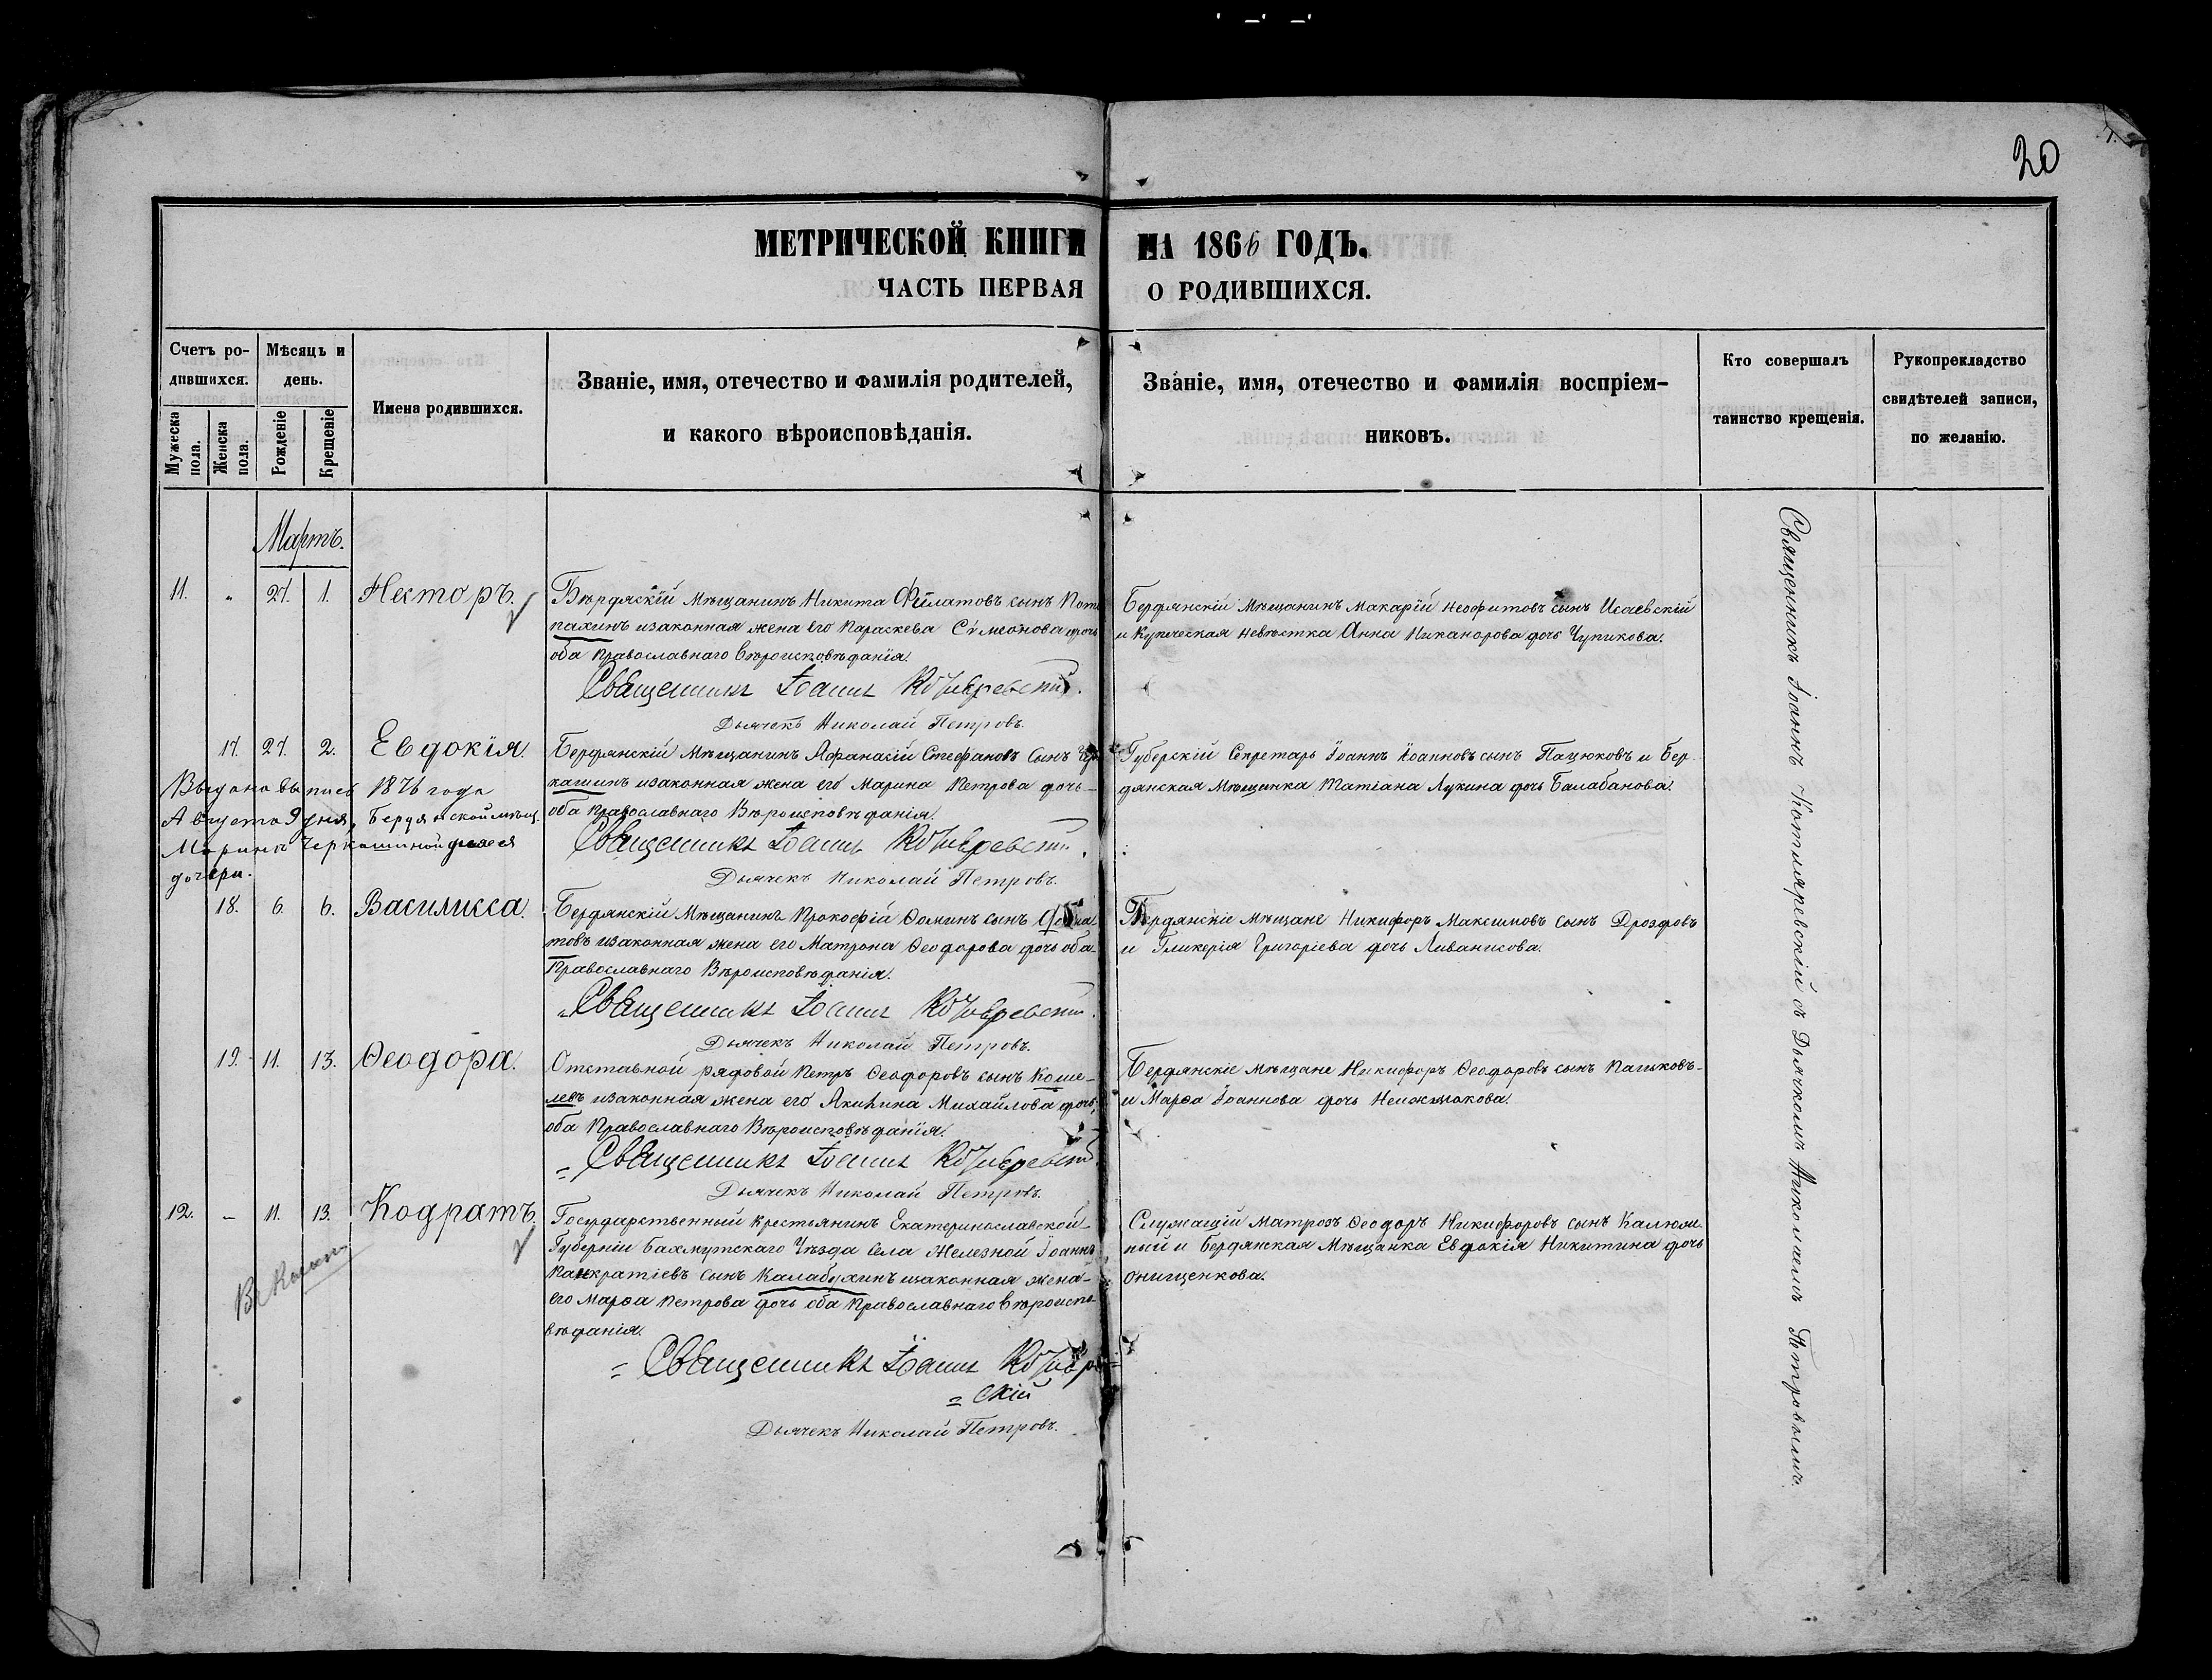 20
МЕТРИЧЕСКОЙ КНИГИ НА 1866 ГОДЪ.
ЧАСТЬ ПЕРВАЯ О РОДИВШИХСЯ.
Счетъ ро-
дившихся.
Мужеска
пола.
Женска
пола.
Мѣсяцъ и
день.
Рожденіе
Крещеніе
Имена родившихся.
Званіе, имя, отечество и фамилія родителей,
и какого вѣроисповѣданія.
Званіе, имя, отечество и фамилія воспріем-
никовъ.
Кто совершалъ
таинство крещенія.
Рукоприкладство
свидѣтелей записи,
по желанію.
Мартъ.
11. " 27. 1. Несторъ.
Бердяскій Мѣщанинъ Никита Филатовъ сынъ
пахинъ изаконная жена его Параскева Симеонова дочь
оба Православнаго Вѣроисповѣданія.
Священникъ Іоаннъ Котляревскій.
Дьячекъ Николай Петровъ.
Бердянскій Мѣщанинъ Макарій Неофитовъ сынъ Исаевскій
и Купеческая невѣстка Анна Никанорова дочь Чупикова.
17. 27. 2. Евдокія.
Бердянскій Мѣщанинъ Афанасій Стефановъ Сынъ Чер
кашинъ изаконная жена его Марина Петрова дочь
оба Православнаго Вѣроисповѣданія.
Священникъ Іоаннъ Котляревскій.
Дьячекъ Николай Петровъ.
Губерскій Секретарь Іоаннъ Іоанновъ сынъ Пацюковъ и Бер-
дянская Мѣщанка Татіана Лукина дочь Балабанова.
Выдана выпись 1876 года
Августа 9 дня, Бердянской мѣщ.
Маринѣ Черкашиной для ея
дочери.
18. 6. 6. Василисса.
Бердянскій Мѣщанинъ Прокофій Ѳоминъ сынъ
товъ изаконная жена его Матрона Ѳеодорова дочь оба
Православнаго Вѣроисповѣданія.
Священникъ Іоаннъ Котляревскій.
Дьячекъ Николай Петровъ.
Бердянскіе Мѣщане Никифоръ Максимовъ сынъ Дроздовъ
и Гликерія Григоріева дочь Ливанисова.
19. 11. 13. Ѳеодора.
Отставной рядовой Петръ Ѳеодоровъ сынъ Коше-
левъ изаконная жена его Акилина Михайлова дочь,
оба Православнаго Вѣроисповѣданія.
Священникъ Іоаннъ Котляревскій
Дьячекъ Николай Петровъ.
Бердянскіе Мѣщане Никифоръ Ѳеодоровъ сынъ Паньковъ-
и Марѳа Іоаннова дочь
12. – 11. 13. Кодратъ.
Государственный крестьянинъ Екатеринославской
Губерніи Бахмутскаго Уѣзда села Железной Іоаннъ
Панкратіевъ сынъ Калабухинъ изаконная жена
его Марѳа Петрова дочь оба Православнаго Вѣроиспо-
вѣданія.
= Священникъ Іоаннъ Котляре
= скій
Дьячекъ Николай Петровъ.
Служащій матросъ Ѳеодоръ Никифоровъ сынъ Калюж-
ный и Бердянская Мѣщанка Евдокія Никитина дочь
Онищенкова.
Священникъ Іоаннъ Котляревскій съ Дьячкомъ Николаемъ Петровымъ.